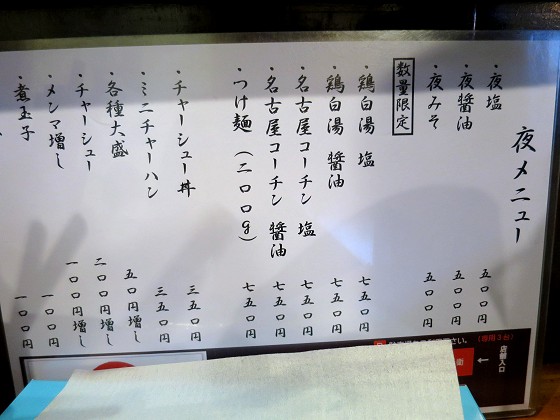 夜メニュー
・夜塩 五〇〇円
・夜醤油 五〇〇円
・夜みそ 五〇〇円
数量限定
・鶏白湯 塩 七五〇円
・鶏白湯 醤油 七五〇円
・名古屋コーチン 塩 七五〇円
・名古屋コーチン 醤油 七五〇円
・つけ麺(二〇〇g) 七五〇円
・チャーシュー丼 三五〇円
・ミニチャーハン 三五〇円
・各種大盛 五〇円増し
二〇〇円増し
・チャーシュー 一〇〇円増し
・メンマ増し 一〇〇円
・煮玉子 一〇〇円
(専用3台)
店舗入口
←